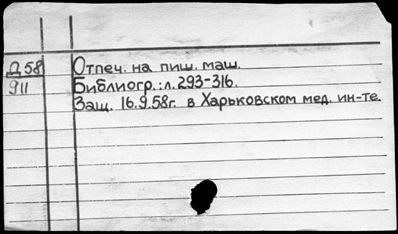 Д 58 Отпеч. на пиш. маш.
911 Библиогр.: л. 293-316.
Защ. 16.9.58г. в Харьковском мед. ин-те.